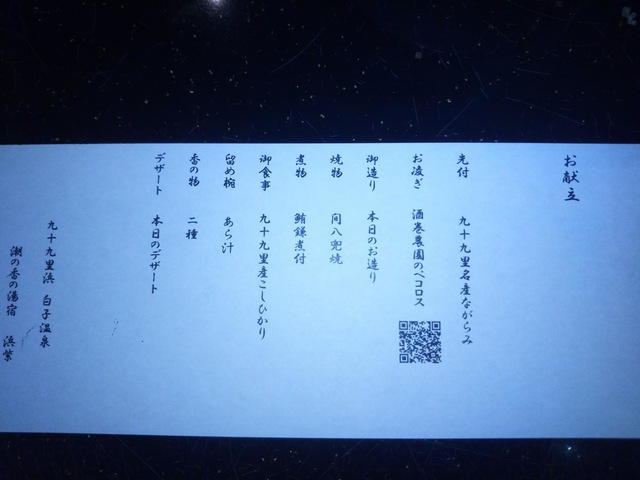 お献立
先付　九十九里名産ながらみ
お凌ぎ　酒巻農園のペコロス
御造り　本日のお造り
焼物　間八兜焼
煮物　鮪鎌煮付
御食事　九十九里産こしひかり
留め椀　あら汁
香の物　二種
デザート　本日のデザート
九十九里浜　白子温泉
潮の香の湯宿　浜紫